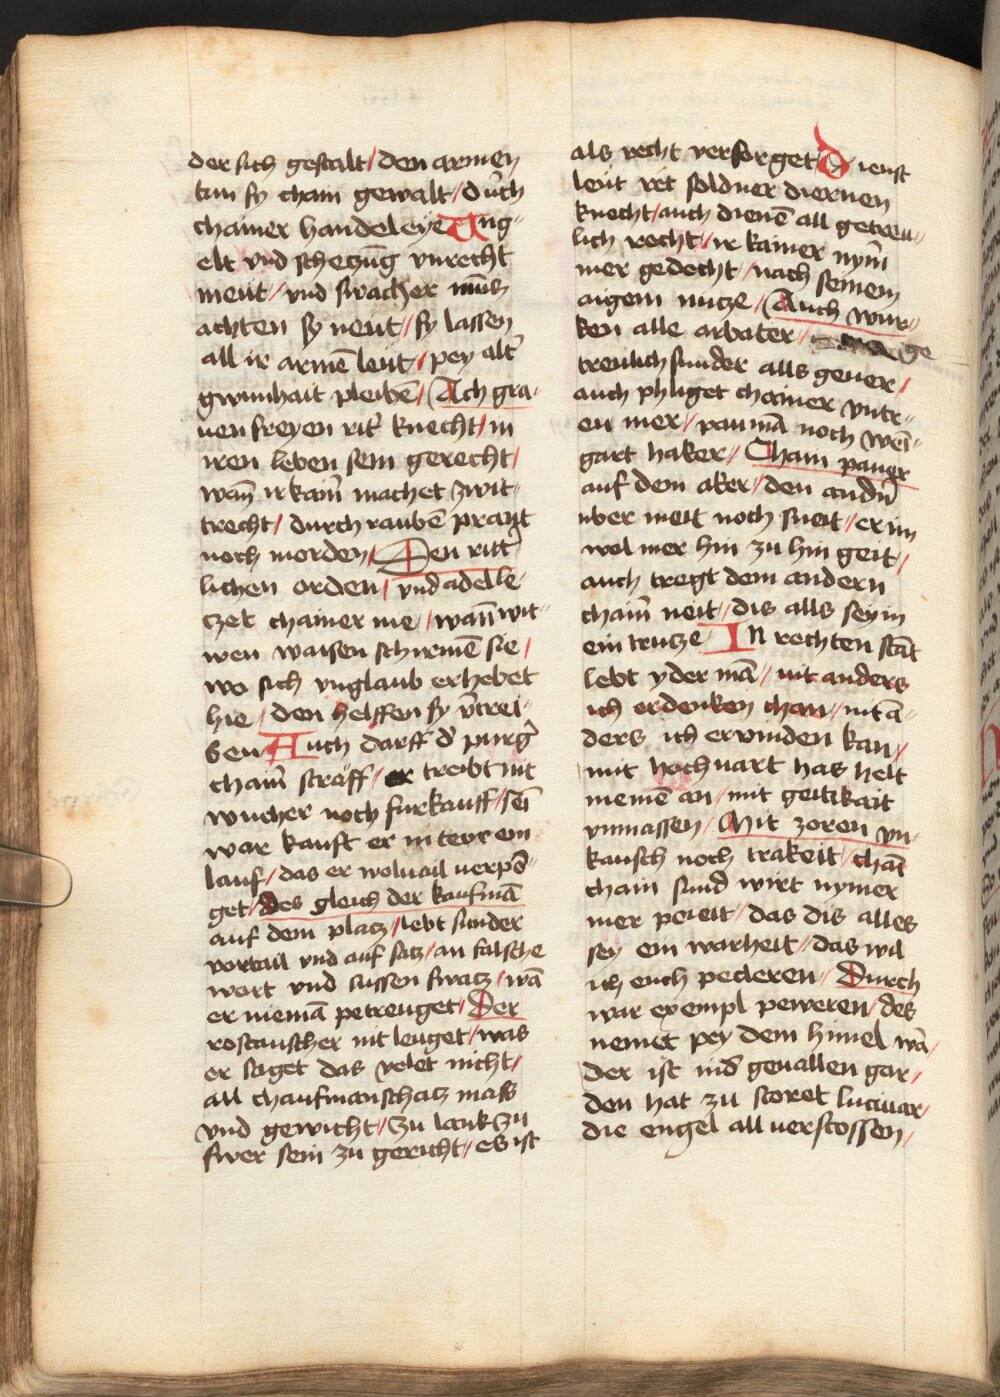 der sich gestalt / den armen
tun sy cham gewalt / durch
chainer handeleye Ung„
elt vnd scheczūg vnrecht
meit / vnd swacher mūs
achten sy neut / sy lassen
all ir armē leut / pey alt̄
gwunhait pleibē / Ach gra„
uen freyen rit̄ knecht / in
iren leben sein gerecht /
wan̄ ir kain̄ machet zwit„
trecht / durch raubē prant
noch morden / Den ritt̄
lichen orden / vnd adel le„
czet chainer nie / wan̄ wit„
wen waisen schirmē sie /
wo sich vnglaub erhebet
hie / den helffen sy v̄trei„
ben Auch darff d̄ purḡ
chain̄ straff / er treibt nit
wucher noch furkauff / sei
war kauft er in tevrem
lauf / das er woluail uerpē„
get / Des gleich der kaufmā
auf dem placz / lebt sunder
vortail vnd auf sacz / an falsche
wort vnd sussen swacz / wā
er niemā petreuget / Der
rostauscher nit leuget / was
er saget das velet nicht /
all chaufmanschacz mass
vnd gewicht / zu lank zu
swer sein zu gericht / es ist
als recht versorget Dienst
leut rit soldner diernen
knecht / auch dienē all getreu„
lich recht / ir kainer nym̄
mer gedecht / nach seinem
aigem nucze / Auch wur„
ken alle arbater / ge
treulich sunder alls geuer /
auch phliget chainer vntr„
eu mer / paumā noch wei„
gart haker / Cham pauer
auf dem aker / den andn̄
uber meit noch sneit / er im
wol mer hin zu hin geit /
auch tregt dem andern
cham̄ neit / dis alls sey in
ein trucze In rechten stāt
lebt yder mā / nit anders
ich erdenken chan / nit ā„
ders ich ervinden kan /
mit hochuart has helt
niemē an / mit geitikait
vnmassen / Mit zoren vn„
kausch noch trakeit / chāt
chain sund wirt nymer
mer pereit / das dis alles
sey ein warheit / das wil
ich euch pederen / Durch
war exempl peweren / des
nemet pey dem himel wā /
der ist nid̄ geuallen gar /
den hat zu storet luciuar /
die engel all uerstossen /